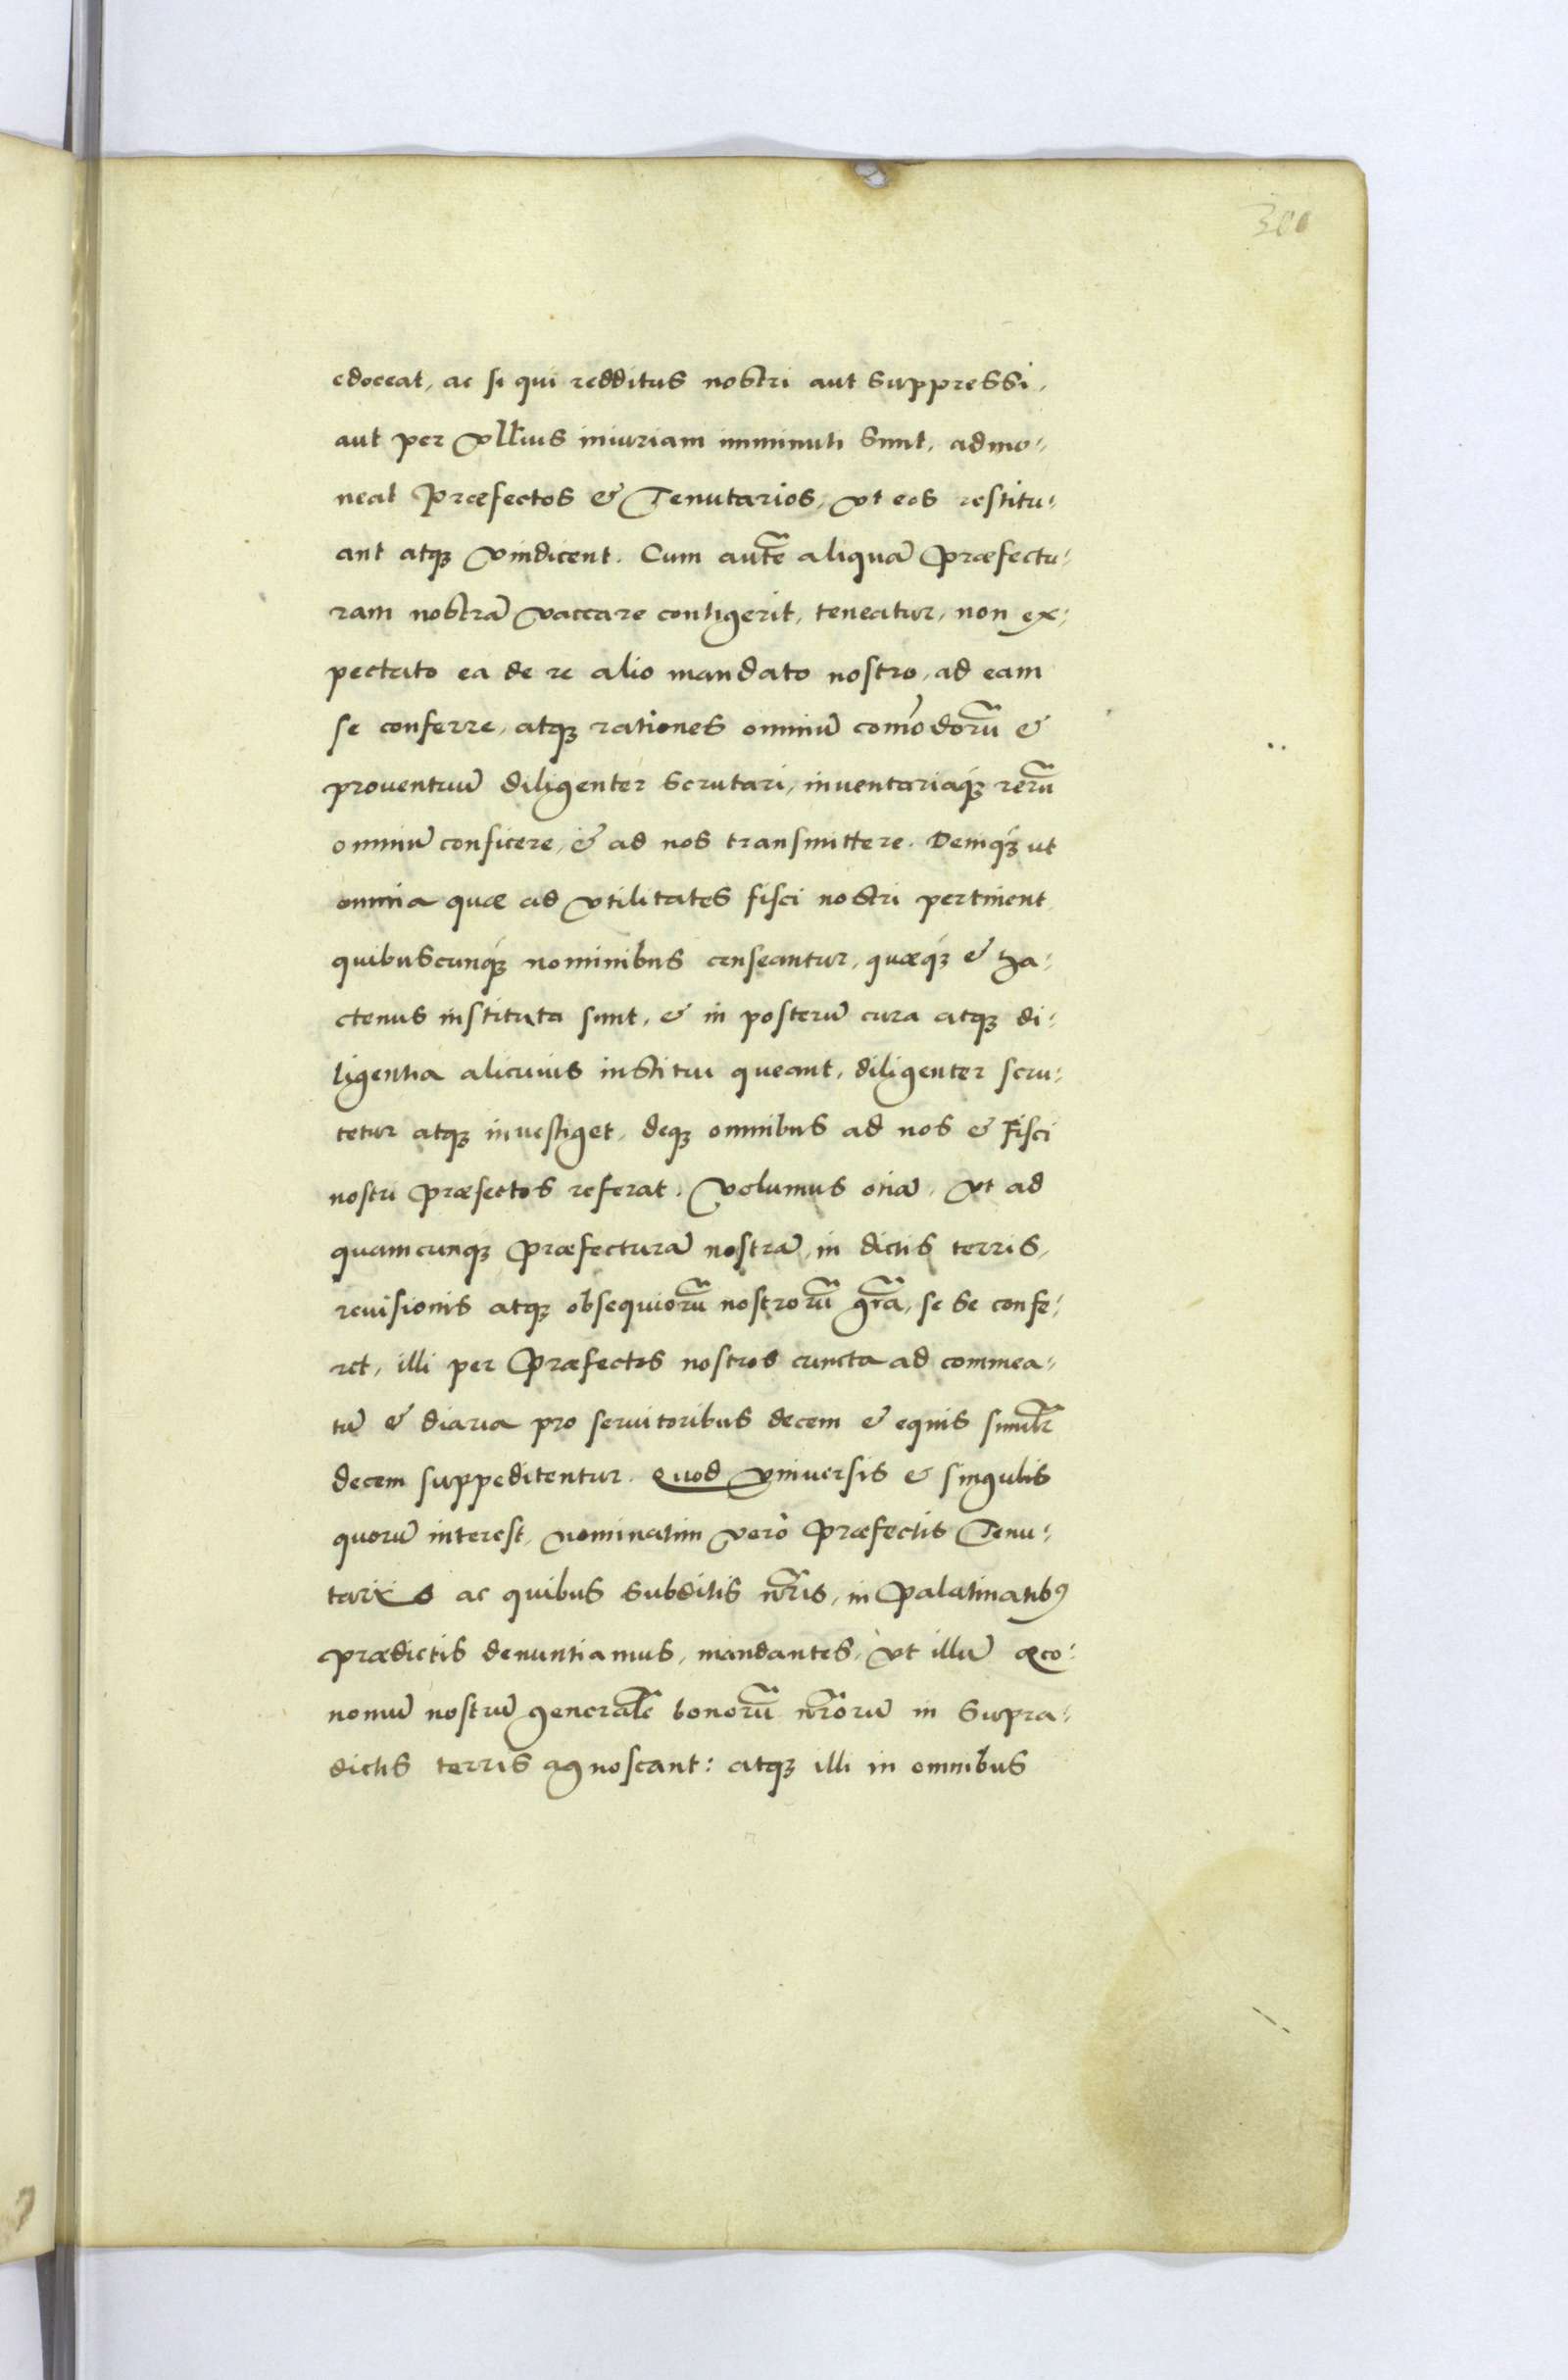 300
edoceat, ac si qui redditus nostri aut suppressi,
aut per vllius iniuriam imminuti sunt, admo:
neat Præfectos & Tenutarios, vt eos restitu:
ant atqꝫ vindicent. Cum autẽ aliquã Præfectu:
ram nostrã vaccare contigerit, teneatur, non ex:
pectato ea de re alio mandato nostro, ad eam
se conferre, atqꝫ rationes omniũ com̃odorũ &
prouentuũ diligenter scrutari, inuentariaqꝫ rerũ
omniũ conficere, & ad nos transmittere. Deniqꝫ ut
omnia quæ ad vtilitates fisci nostri pertinent
quibuscunqꝫ nominibus censeantur, quæqꝫ & ha:
ctenus instituta sunt, & in posterũ cura atqꝫ di:
ligentia alicuius institui queant, diligenter scru:
tetur atqꝫ inuestiget, deqꝫ omnibus ad nos & Fisci
nostri Præfectos referat. Volumus etiã, vt ad
quamcunqꝫ Præfecturã nostrã, in dictis terris,
reuisionis atqꝫ obsequiorũ nostrorũ grã̃a, se se confe:
ret, illi per Præfectos nostros cuncta ad commea:
tũ & diaria pro seruitoribus decem & equis simil̃r
decem suppeditentur. Quod vniuersis & singulis
quorũ interest, nominatim verò Præfectis Tenu:
tarijs ac quibus subditis nr̃is, in Palatinatibꝰ
prædictis denuntiamus, mandantes, vt illũ œco:
nomũ nostrũ generalẽ bonorũ nr̃orũ in supra:
dictis terris agnoscant: atqꝫ illi in omnibus